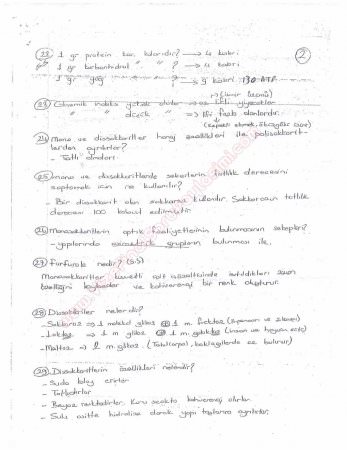 2
22) 1 gr protein kaç kaloridir? → 4 kalori
1 gr karbonhidrat " " ? → 4 kalori
1 gr yağ " ? → 9 kalori 130 ATP
23) Glisemik indeks yüksek olanlar ⇒ lifli yiyecekler
" " düşük " ⇒ lifi fazla olanlardır.
24) Mono ve disakkaritler hangi özellikleri ile polisakkarit-
lerden ayrılırlar?
- Tatlı olmaları
25) Mono ve disakkaritlerde şekerlerin tatlılık derecesini
saptamak için ne kullanılır?
- Bir disakkarit olan sakkaroz kullanılır. Sakkarozun tatlılık
derecesi 100 kabul edilmiştir
26) Monosakkaritlerin optik faaliyetlerinin bulunmasının sebepleri?
- yapılarında asimetrik grupların bulunması ile.
27) Furfurole nedir? (S.S)
Monosakkaritler kuvvetli asit ısıtıldıkları zaman
özelliğini kaybeder ve kahverengi bir renk oluşturur.
28) Disakkaritler nelerdir?
- Sakkaroz ⇒ 1 molekül glikoz 1 m. fruktoz
- Laktoz ⇒ 1 m glikoz 1 m. galaktoz
- Maltoz ⇒ 2 m. glikoz. (Tahıl, baklagillerde az bulunur)
29) Disakkaritlerin özellikleri nelerdir?
- Suda kolay erirler
- Tatlıdırlar
- Beyaz renktedirler. Kuru sıcakta kahverengi olurlar
- Sulu asitte hidrolize olarak yapı taşlarına ayrılırlar.